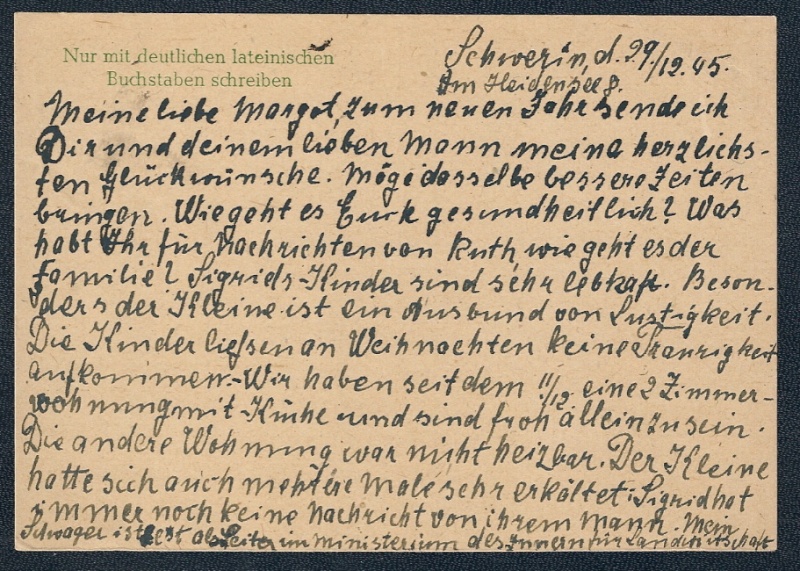 Nur mit deutlichen lateinischen
Buchstaben schreiben
Schwerin, d. 29/12.45.
Am Heidensee 8.
Meine liebe Margot, zum neuen Jahr sende ich
Dir und deinem lieben Mann meine herzlichs-
ten Glückwünsche. Möge dasselbe bessere Zeiten
bringen. Wie geht es Euch gesundheitlich? Was
habt Ihr für Nachrichten von Ruth wie geht es der
Familie? Sigrids-Kinder sind sehr lebhaft. Beson-
ders der Kleine ist ein Ausbund von Lustigkeit.
Die Kinder liessen an Weihnachten keine Traurigkeit
aufkommen.-Wir haben seit dem 11/12 eine 2 Zimmer-
wohnung mit Küche und sind froh allein zu sein.
Die andere Wohnung war nicht heizbar. Der Kleine
hatte sich auch mehrere Male sehr erkältet. Sigrid hat
immer noch keine Nachricht von ihrem Mann. Mein
Schwager ist als Leiter im Ministerium des Innern für Landwirtschaft